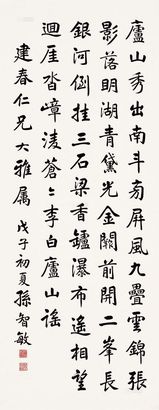 廬山秀出南斗旁屏風九疊雲錦張
影落明湖青黛光金闕前開二峯長
銀河倒挂三石梁香鑪瀑布遙相望
迴崖沓嶂淩蒼蒼李白廬山謠
建春仁兄大雅属戊子初夏孫智敏